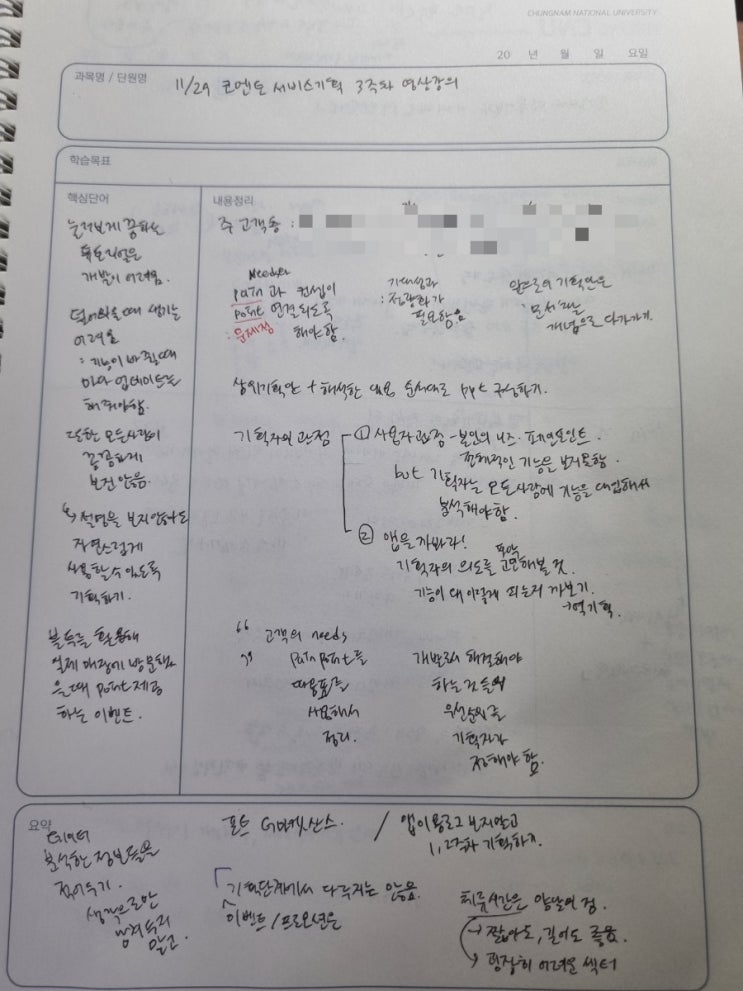 CHUNGNAM NATIONAL UNIVERSITY
20 년 월 일 요일
과목명 / 단원명
11/29 코멘토 서비스기획 3주차 영상강의
학습목표
핵심단어
눌러보게 끔하는
튜토리얼은
개발이 어려움.
띄어쓰울때 생기는
어려움
: 기능이 바뀔때
마다 업데이트를
해줘야함.
또한 모든사람이
꼼꼼하게
보진 않음.
설명을 보지않아도
자연스럽게
사용할수있도록
기획하기.
블루투스를 활용해
실제 매장에 방문했
을때 point 제공
하는 이벤트.
내용정리
주 고객층 :
Needs
pain과 컨셉이
point 연결되도록
: 문제점 해야함.
기대성과
: 정량화가
필요함음
앞으로의 기획안은
문서라는
개념으로 다가가기.
상위기획안 + 해석한 내용 순서대로 ppt 구성하기.
기획자의 관점
① 사용자관점 - 본인의 니즈. 페인포인트.
전체적인 기능을 보지못함.
but 기획자는 모든사람에 기능을 대입해서
분석해야함.
② 앱을까봐라!
기획자의 의도를 파악 고민해볼 것.
기능이 왜 이렇게 되는지 까보기.
→ 역기획.
" 고객의 needs
" pain point를
따옴표를
사용해서
정리.
개발로서 해결해야
하는것들의
우선순위를
기획자가
정해야 함.
요약
데이터
분석한 정보들을
적어두기.
생각으로만
남겨두지
말고.
폰트 G마켓산스. / 앱이용로그 보지말고
1,2주차 기획하기.
기획단계에서 다루지는 않음.
이벤트/프로모션은
체류시간은 양날의 검.
→ 짧아도, 길어도 좋음.
→ 굉장히 어려운 섹터